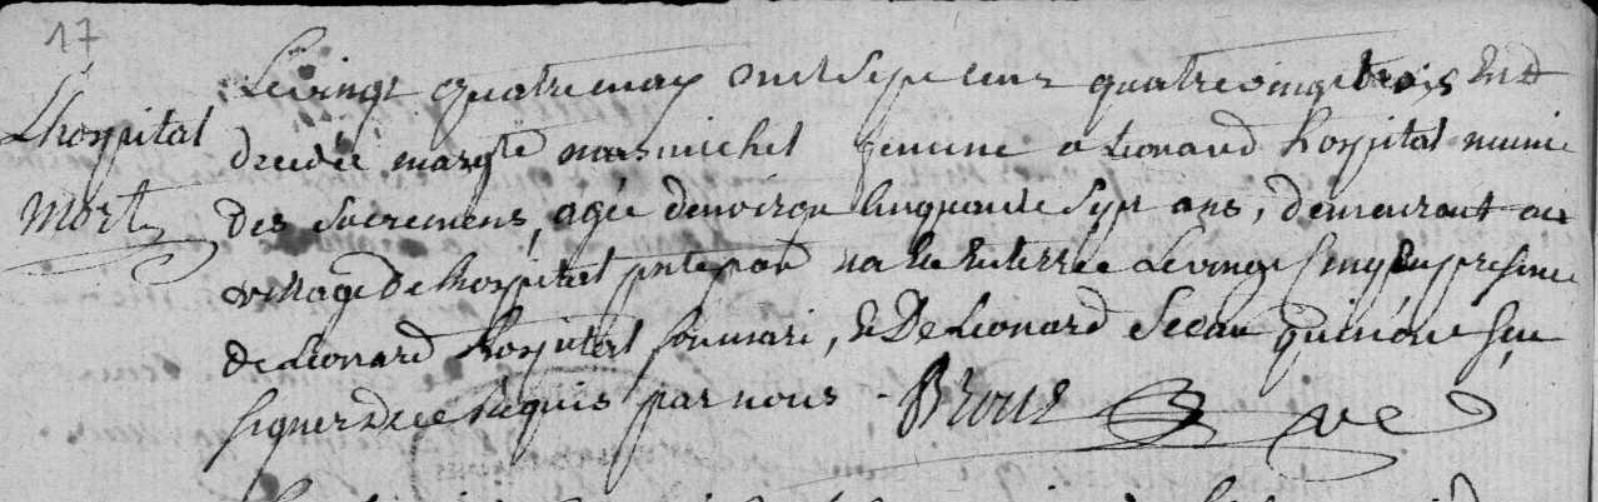 17
Lhospital
Mort
Le vingt quatre may mil sept cent quatre vingt trois Est
decedée margte marsmichel femme a Leonard Lhospital munie
des sacremens, agée denviron cinquante sept ans, demeurant au
village de Lhospital pnte par Enterrée Le vingt cinq En presence
de Leonard Lhospital son mari, & De Leonard qui n'ont sçu
signer de ce Requis par nous. -